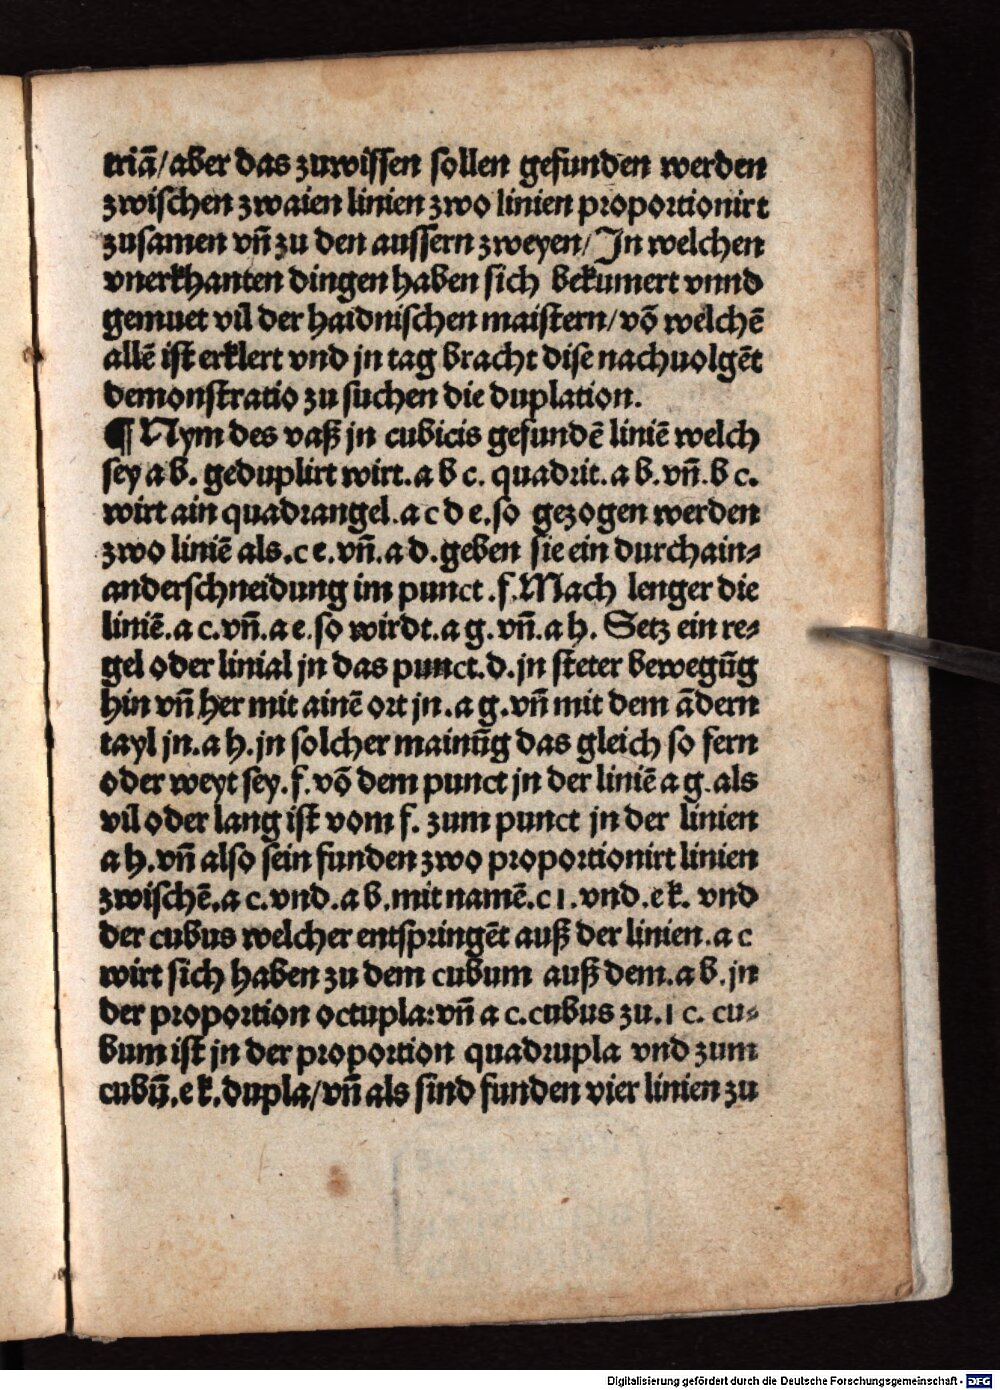 triā/aber das zuwissen sollen gefunden werden
zwischen zwaien linien zwo linien proportionirt
zusamen vñ zu den aussern zweyen/ Jn welchen
vnerkhanten dingen haben sich bekumert vnnd
gemuet vil der haidnischen maistern/võ welchē
allē ist erklert vnd jn tag bracht dise nachuolgēt
demonstratio zu suchen die duplation.
¶ Nym des vaß jn cubicis gefundē liniē welch
sey a b. geduplirt wirt. a b c. quadrit. a b. vñ. b c.
wirt ain quadrangel. a c d e. so gezogen werden
zwo liniē als. c e. vñ. a d. geben sie ein durchain⸗
anderschneidung im punct. f. Mach lenger die
liniē. a c. vñ. a e. so wirdt. a g. vñ. a h. Setz ein re⸗
gel oder linial jn das punct. d. jn steter bewegūg
hin vñ her mit ainē ort jn. a g. vñ mit dem ādern
tayl jn. a h. jn solcher mainūg das gleich so fern
oder weyt sey. f. võ dem punct jn der liniē a g. als
vil oder lang ist vom f. zum punct jn der linien
a h. vñ also sein funden zwo proportionirt linien
zwischē. a c. vnd. a b. mit namē. c i. vnd. e k. vnd
der cubus welcher entspringēt auß der linien. a c
wirt sich haben zu dem cubum auß dem. a b. jn
der proportion octupla: vñ a c. cubus zu. i c. cu⸗
bum ist jn der proportion quadrupla vnd zum
cubū. e k. dupla/vñ als sind funden vier linien zu
Digitalisierung gefördert durch die Deutsche Forschungsgemeinschaft - DFG